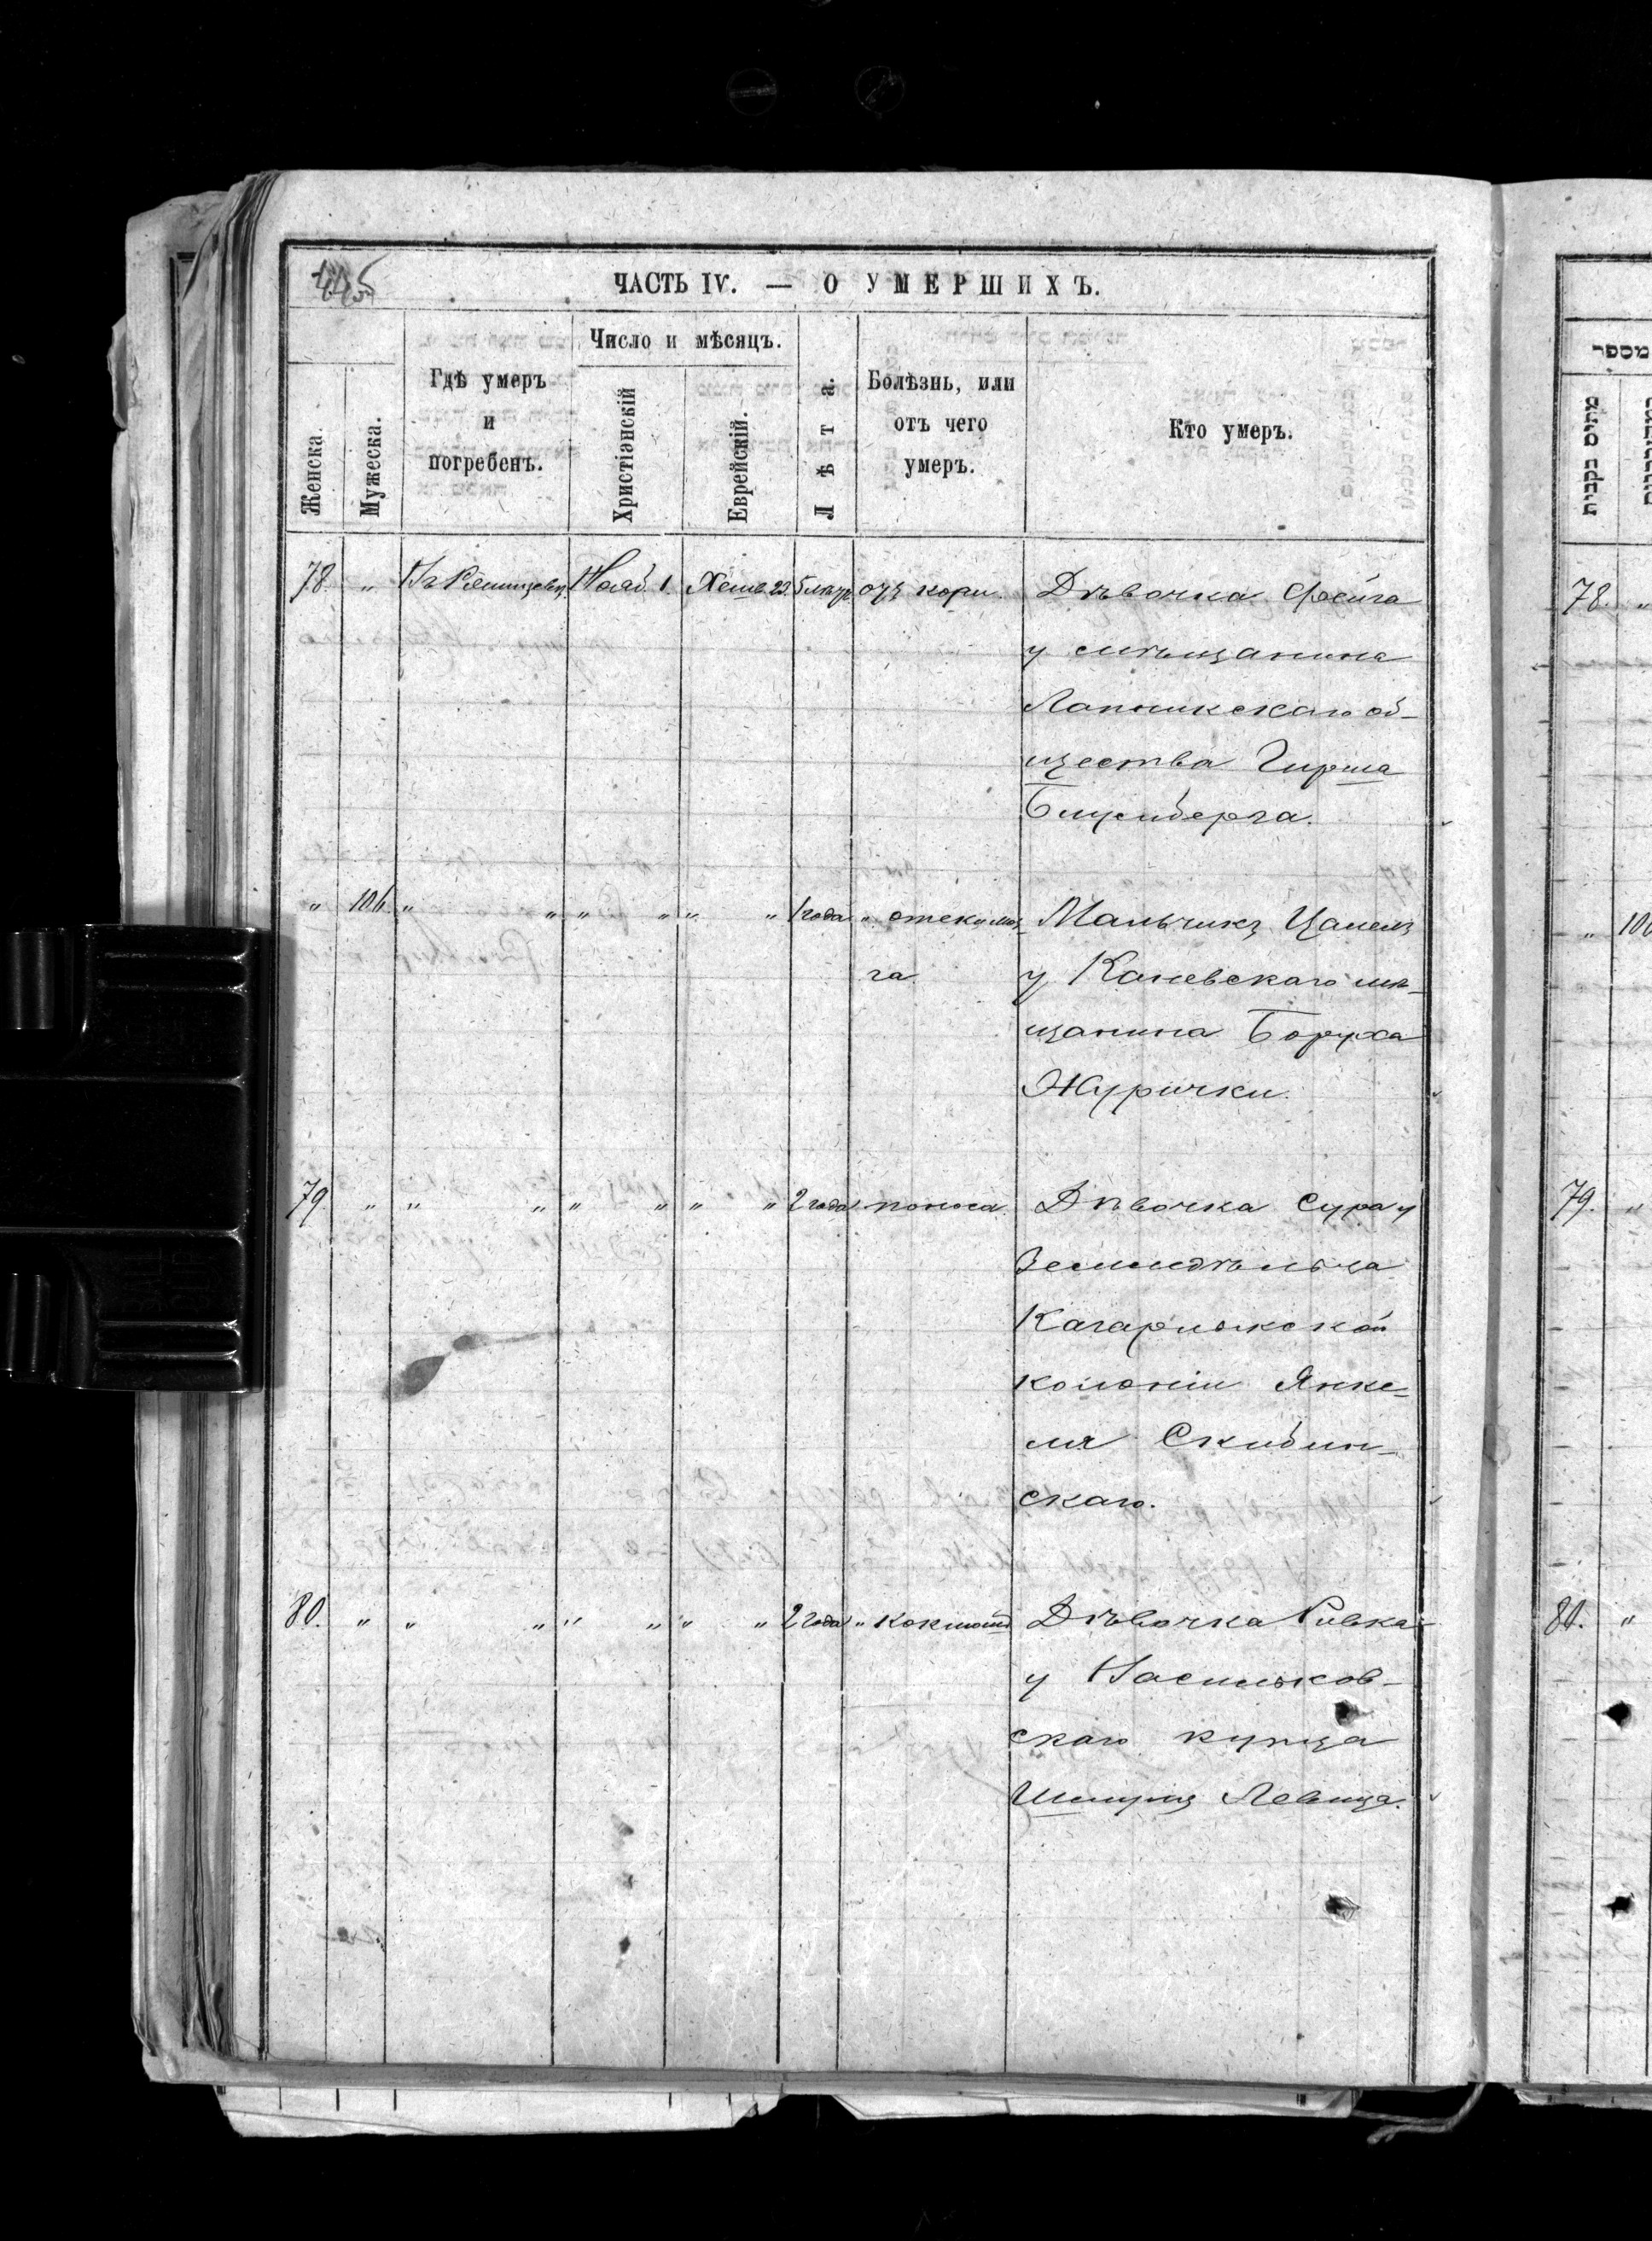 445
ЧАСТЬ IV. — О УМЕРШИХЪ.
Женска.
Мужеска.
Гдѣ умеръ
и
погребенъ.
Число и мѣсяцъ.
Христіэнскій
Еврейскій.
Лѣта.
Болѣзнь, или
отъ чего
умеръ.
Кто умеръ.
78. " Нояб. 1. Хешв. 23. 5 отъ кори. Дѣвочка Фейга
у мѣщанина
об-
щества Гирша
106. " " " " " " 1 года " отека моз- Мальчикъ
га. у Каневскаго мѣ-
щанина Боруха
Журички.
79. " " " " " " " 2 года поноса. Дѣвочка Сура у
Земледѣльца
Кагарлыкской
колоніи Янке-
ля Скибин-
скаго.
80. " " " " " " " 2 года " коклюша Дѣвочка Ривка
у Васильков-
скаго купца
מספר
מתים נקבות
78. "
" 106
79. "
80. "